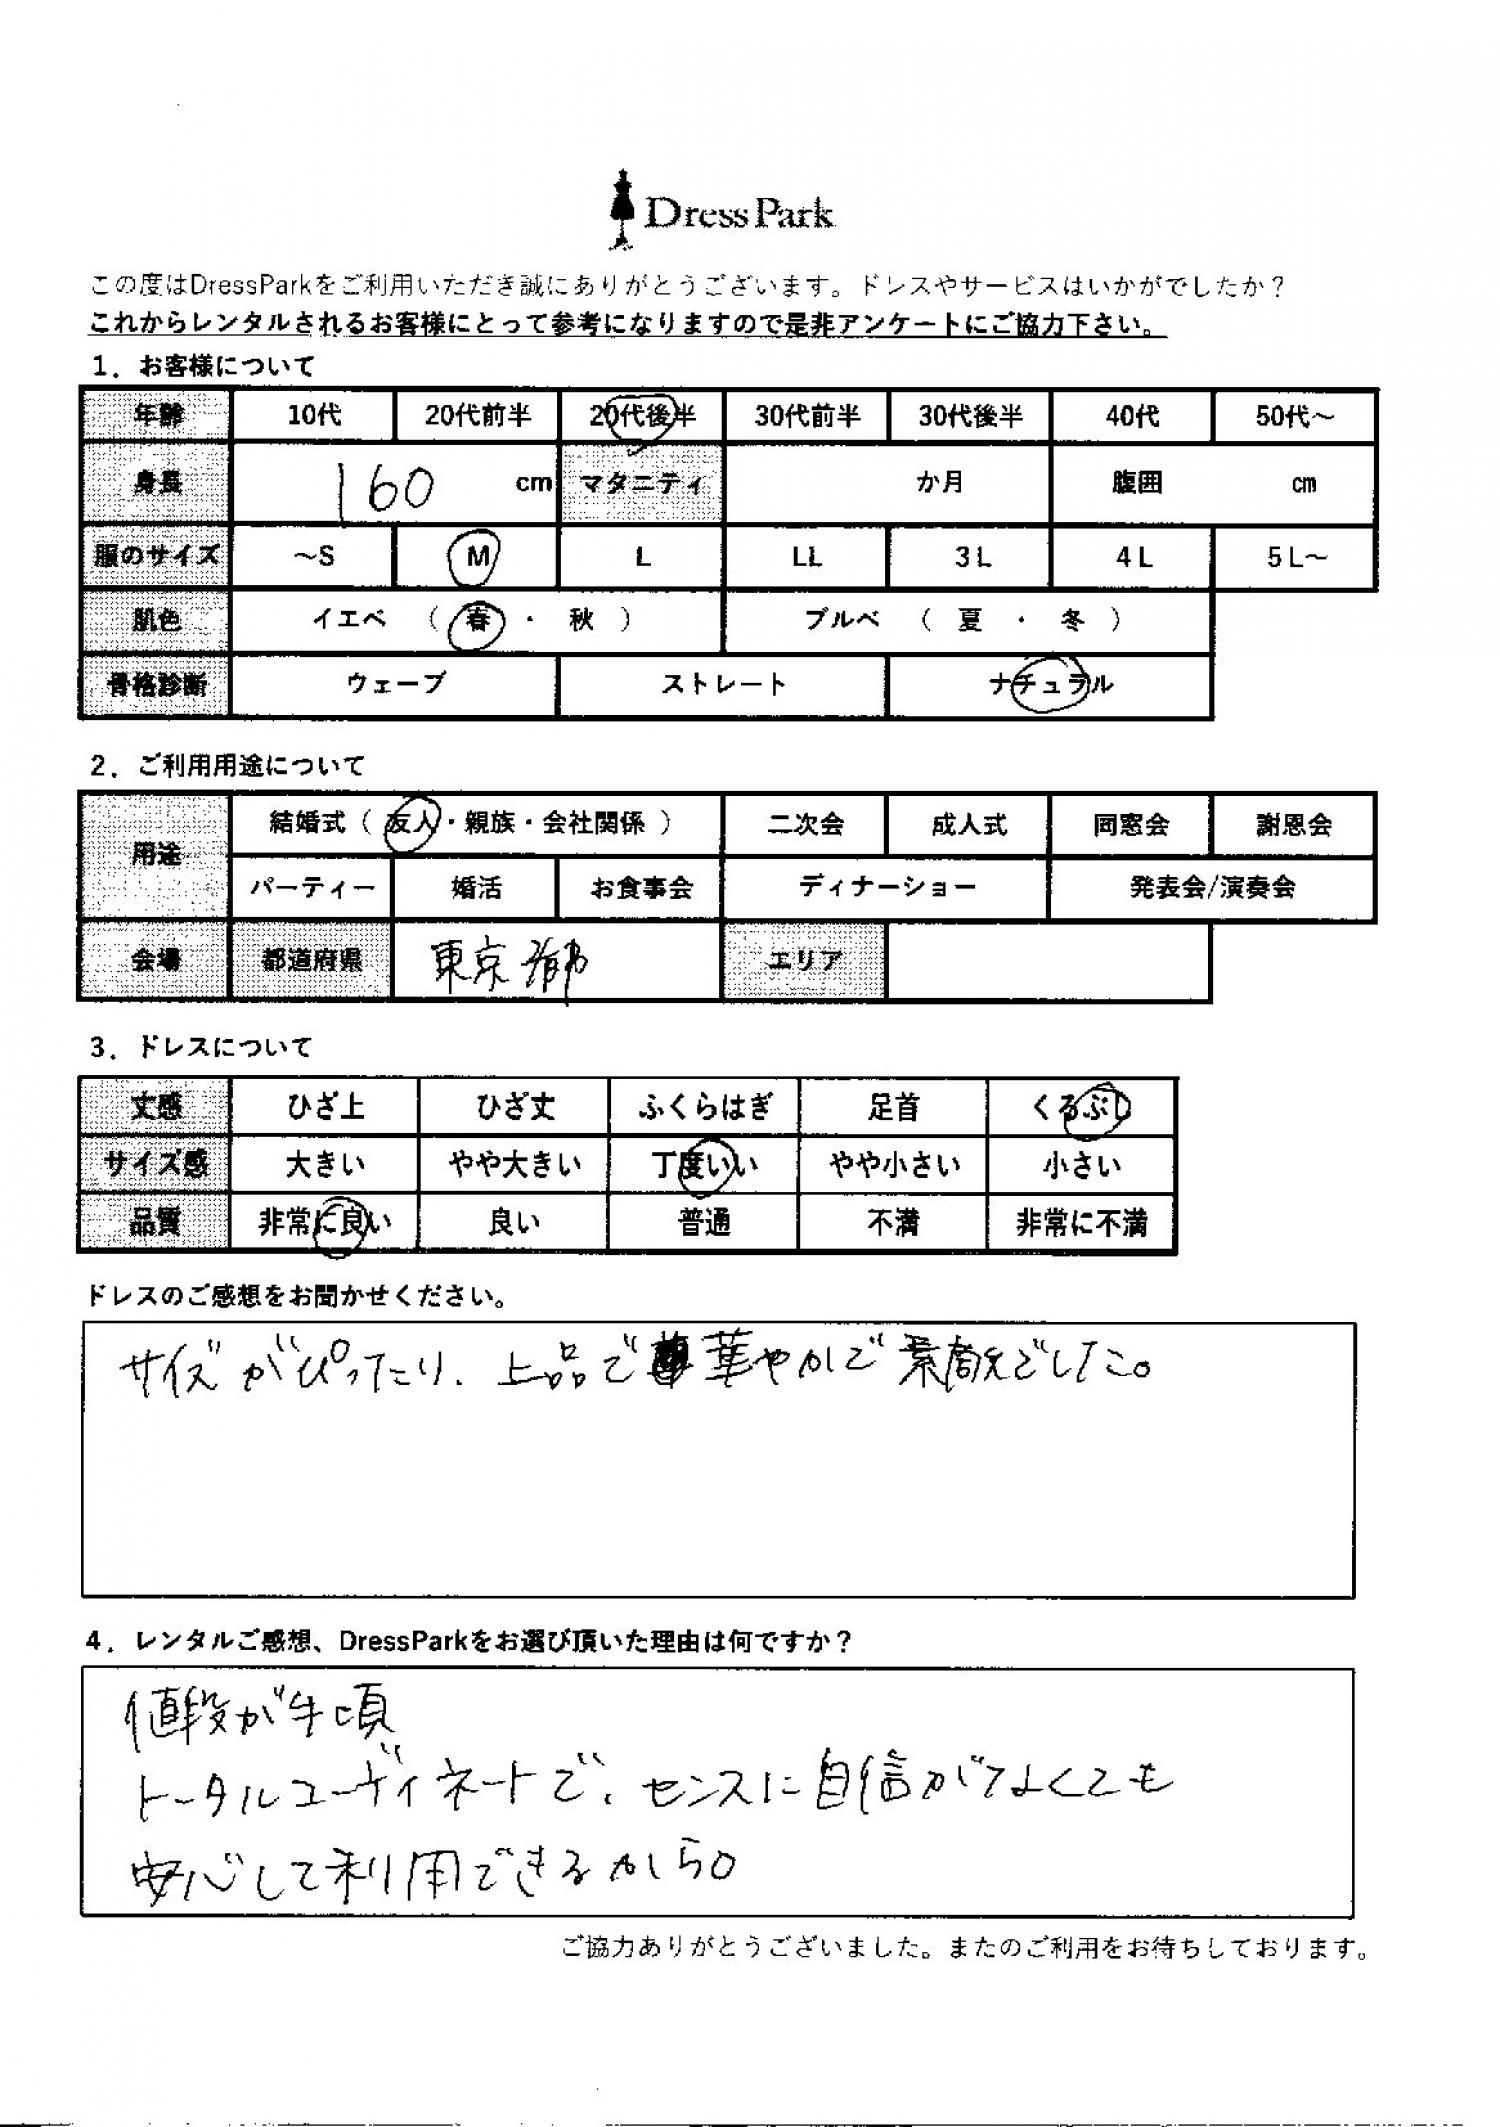 DressPark
この度はDressParkをご利用いただき誠にありがとうございます。ドレスやサービスはいかがでしたか？
これからレンタルされるお客様にとって参考になりますので是非アンケートにご協力下さい。
1．お客様について
年齢 10代 20代前半 20代後半 30代前半 30代後半 40代 50代～
身長 160 cm マタニティ か月 腹囲 cm
服のサイズ ～S M L LL 3L 4L 5L～
肌色 イエベ （ 春 ・ 秋 ） ブルベ （ 夏 ・ 冬 ）
骨格診断 ウェーブ ストレート ナチュラル
2．ご利用用途について
用途 結婚式（ 友人・親族・会社関係 ） 二次会 成人式 同窓会 謝恩会
パーティー 婚活 お食事会 ディナーショー 発表会/演奏会
会場 都道府県 東京都 エリア
3．ドレスについて
丈感 ひざ上 ひざ丈 ふくらはぎ 足首 くるぶし
サイズ感 大きい やや大きい 丁度いい やや小さい 小さい
品質 非常に良い 良い 普通 不満 非常に不満
ドレスのご感想をお聞かせください。
サイズがぴったり、上品で華やかで素敵でした。
4．レンタルご感想、DressParkをお選び頂いた理由は何ですか？
値段が手頃
トータルコーディネートで、センスに自信がなくても
安心して利用できるから。
ご協力ありがとうございました。またのご利用をお待ちしております。